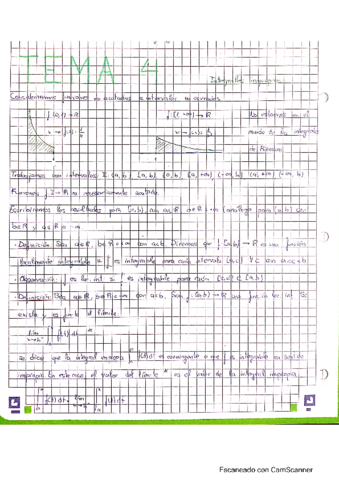 TEMA 4
Integrales impropias
Consideraremos funciones no acotadas o intervalos no acotados
f:(0,1]→R f:[1,+∞)→R No estamos en el
mundo de las integrales
de Riemann
Trabajamos con intervalos I: (a,b) [a,b) (a,b] (a,+∞) (-∞,b) [a,+∞) (-∞,b]
Funciones f: I→R no necesariamente acotada
Escribiremos los resultados para [a,b) con a∈R b∈R o +∞ (análogo para (a,b] con
b∈R y a∈R o -∞
· Definición: Sea a∈R, b∈R o +∞ con a<b. Diremos que f:[a,b)→R es una función
localmente integrable si f es integrable para cada intervalo [a,c] ∀c con a<c<b
· Observación: f es loc. int f es integrable para cada
· Definición: Sea a∈R, b∈R o +∞ con a<b. Sea f:[a,b)→R una función loc int. Si
existe y es finito el límite
lim f(t)dt
se dice que la integral impropia f(t)dt es convergente o que f es integrable en sentido
impropio. En este caso el valor del límite es el valor de la integral impropia
f(t)dt = lim f(t)dt
Escaneado con CamScanner